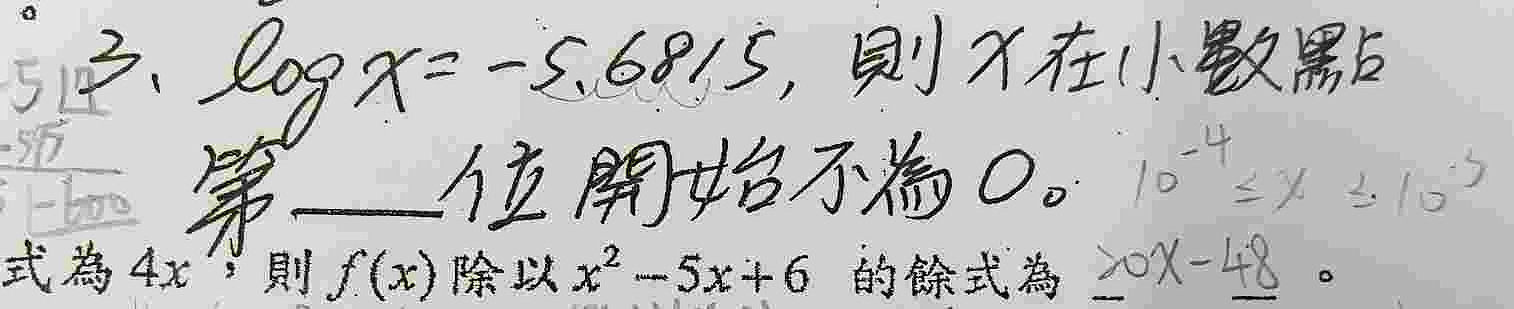 3、log x = -5.6815, 則 x 在小數點
第___位開始不為0。 10⁻⁴ ≤ x ≤ 10⁻⁵
式為 4x,則 f(x) 除以 x² - 5x + 6 的餘式為 20x-48。